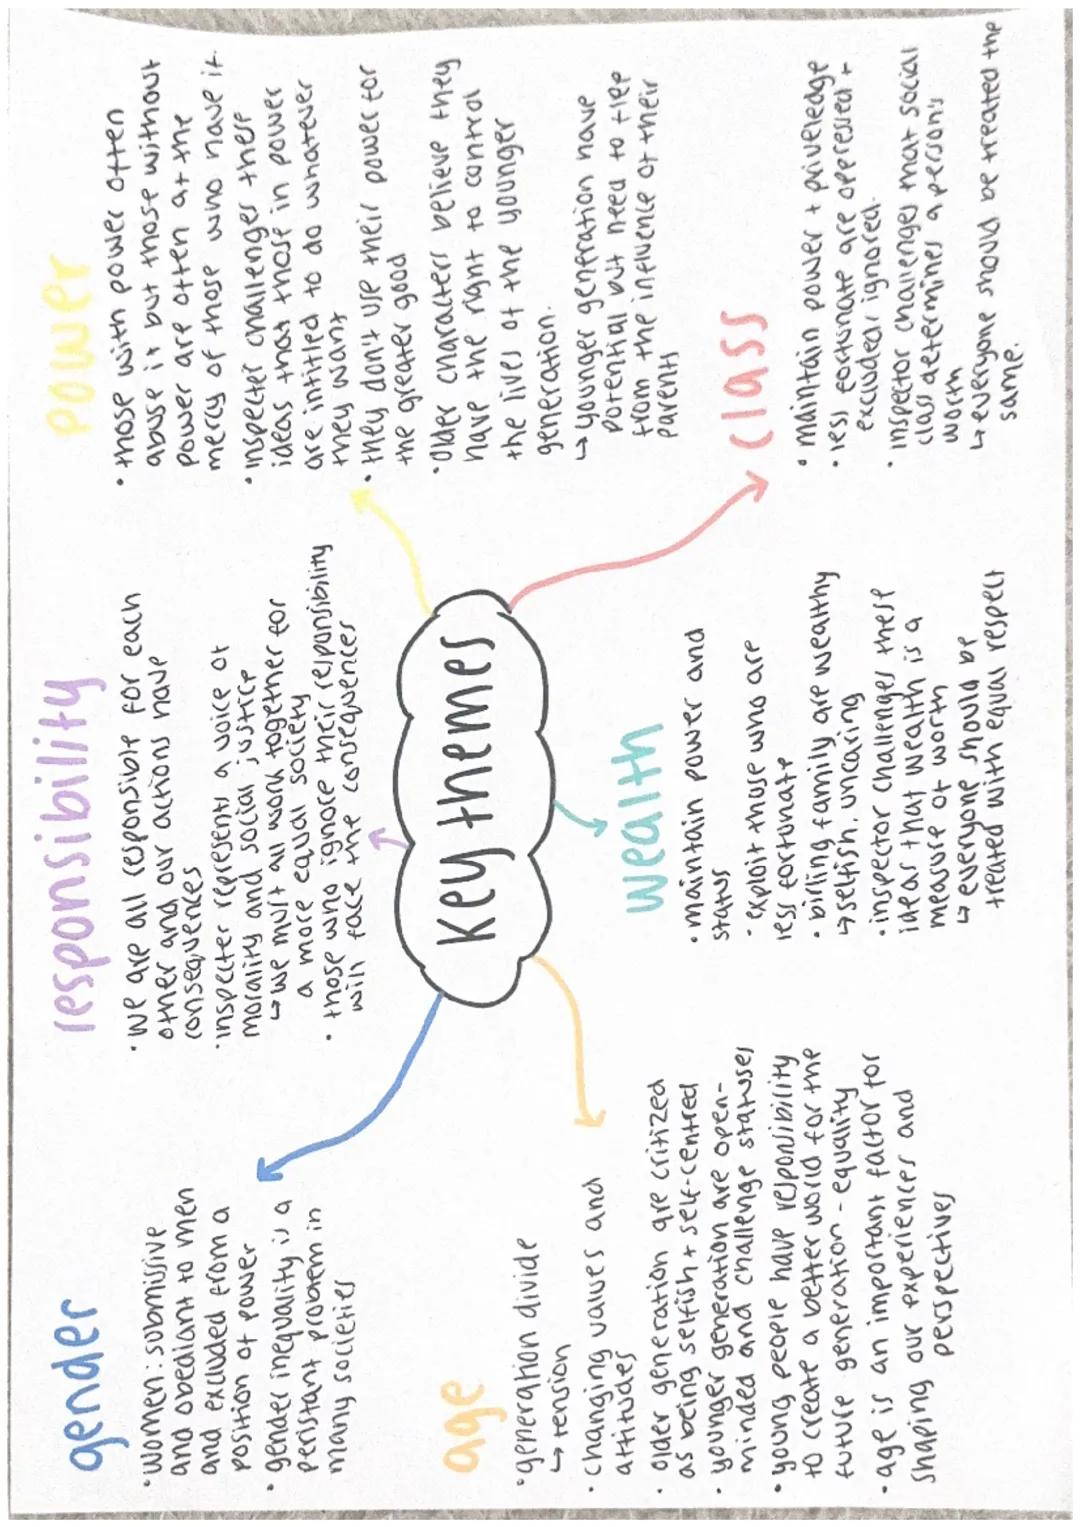 gender
• women: submissive
and obediant to men
and excluded from a
position of power
• gender inequality is a
peristant problem in
many societies
responsibility
• we are all responsible for each
other and our actions have
consequences
• inspecter represents a voice of
morality and social justice
↳ we must all work together for
a more equal society
• those who ignore their responsibility
will face the consequences
power
• those with power often
abuse it but those without
power are often at the
mercy of those who have it.
• inspecter challenges these
ideas that those in power
are intitled to do whatever
they want
• they dont use their power for
the greater good
• Older characters believe they
have the right to control
the lives of the younger
generation.
↳ younger generation have
potential but need to flee
from the influence of their
parents
Key themes
age
• generation divide
↳ tension
• changing values and
attitudes
• older generation are critized
as being selfish + self-centred
• younger generation are open-
minded and challenge statuses
• young people have responibility
to create a better world for the
future generation - equality
• age is an important factor for
shaping our experiences and
perspectives
wealth
• maintain power and
status
• exploit those who are
less fortunate
• birling family are wealthy
↳ selfish, uncaring
• inspector challenges these
ideas that wealth is a
measure of worth
↳ everyone should be
treated with equal respect
class
• maintain power + priveledge
• less fortunate are opressed +
excluded/ignored.
• inspector challenges that social
class determines a person's
worth
↳ everyone should be treated the
same.